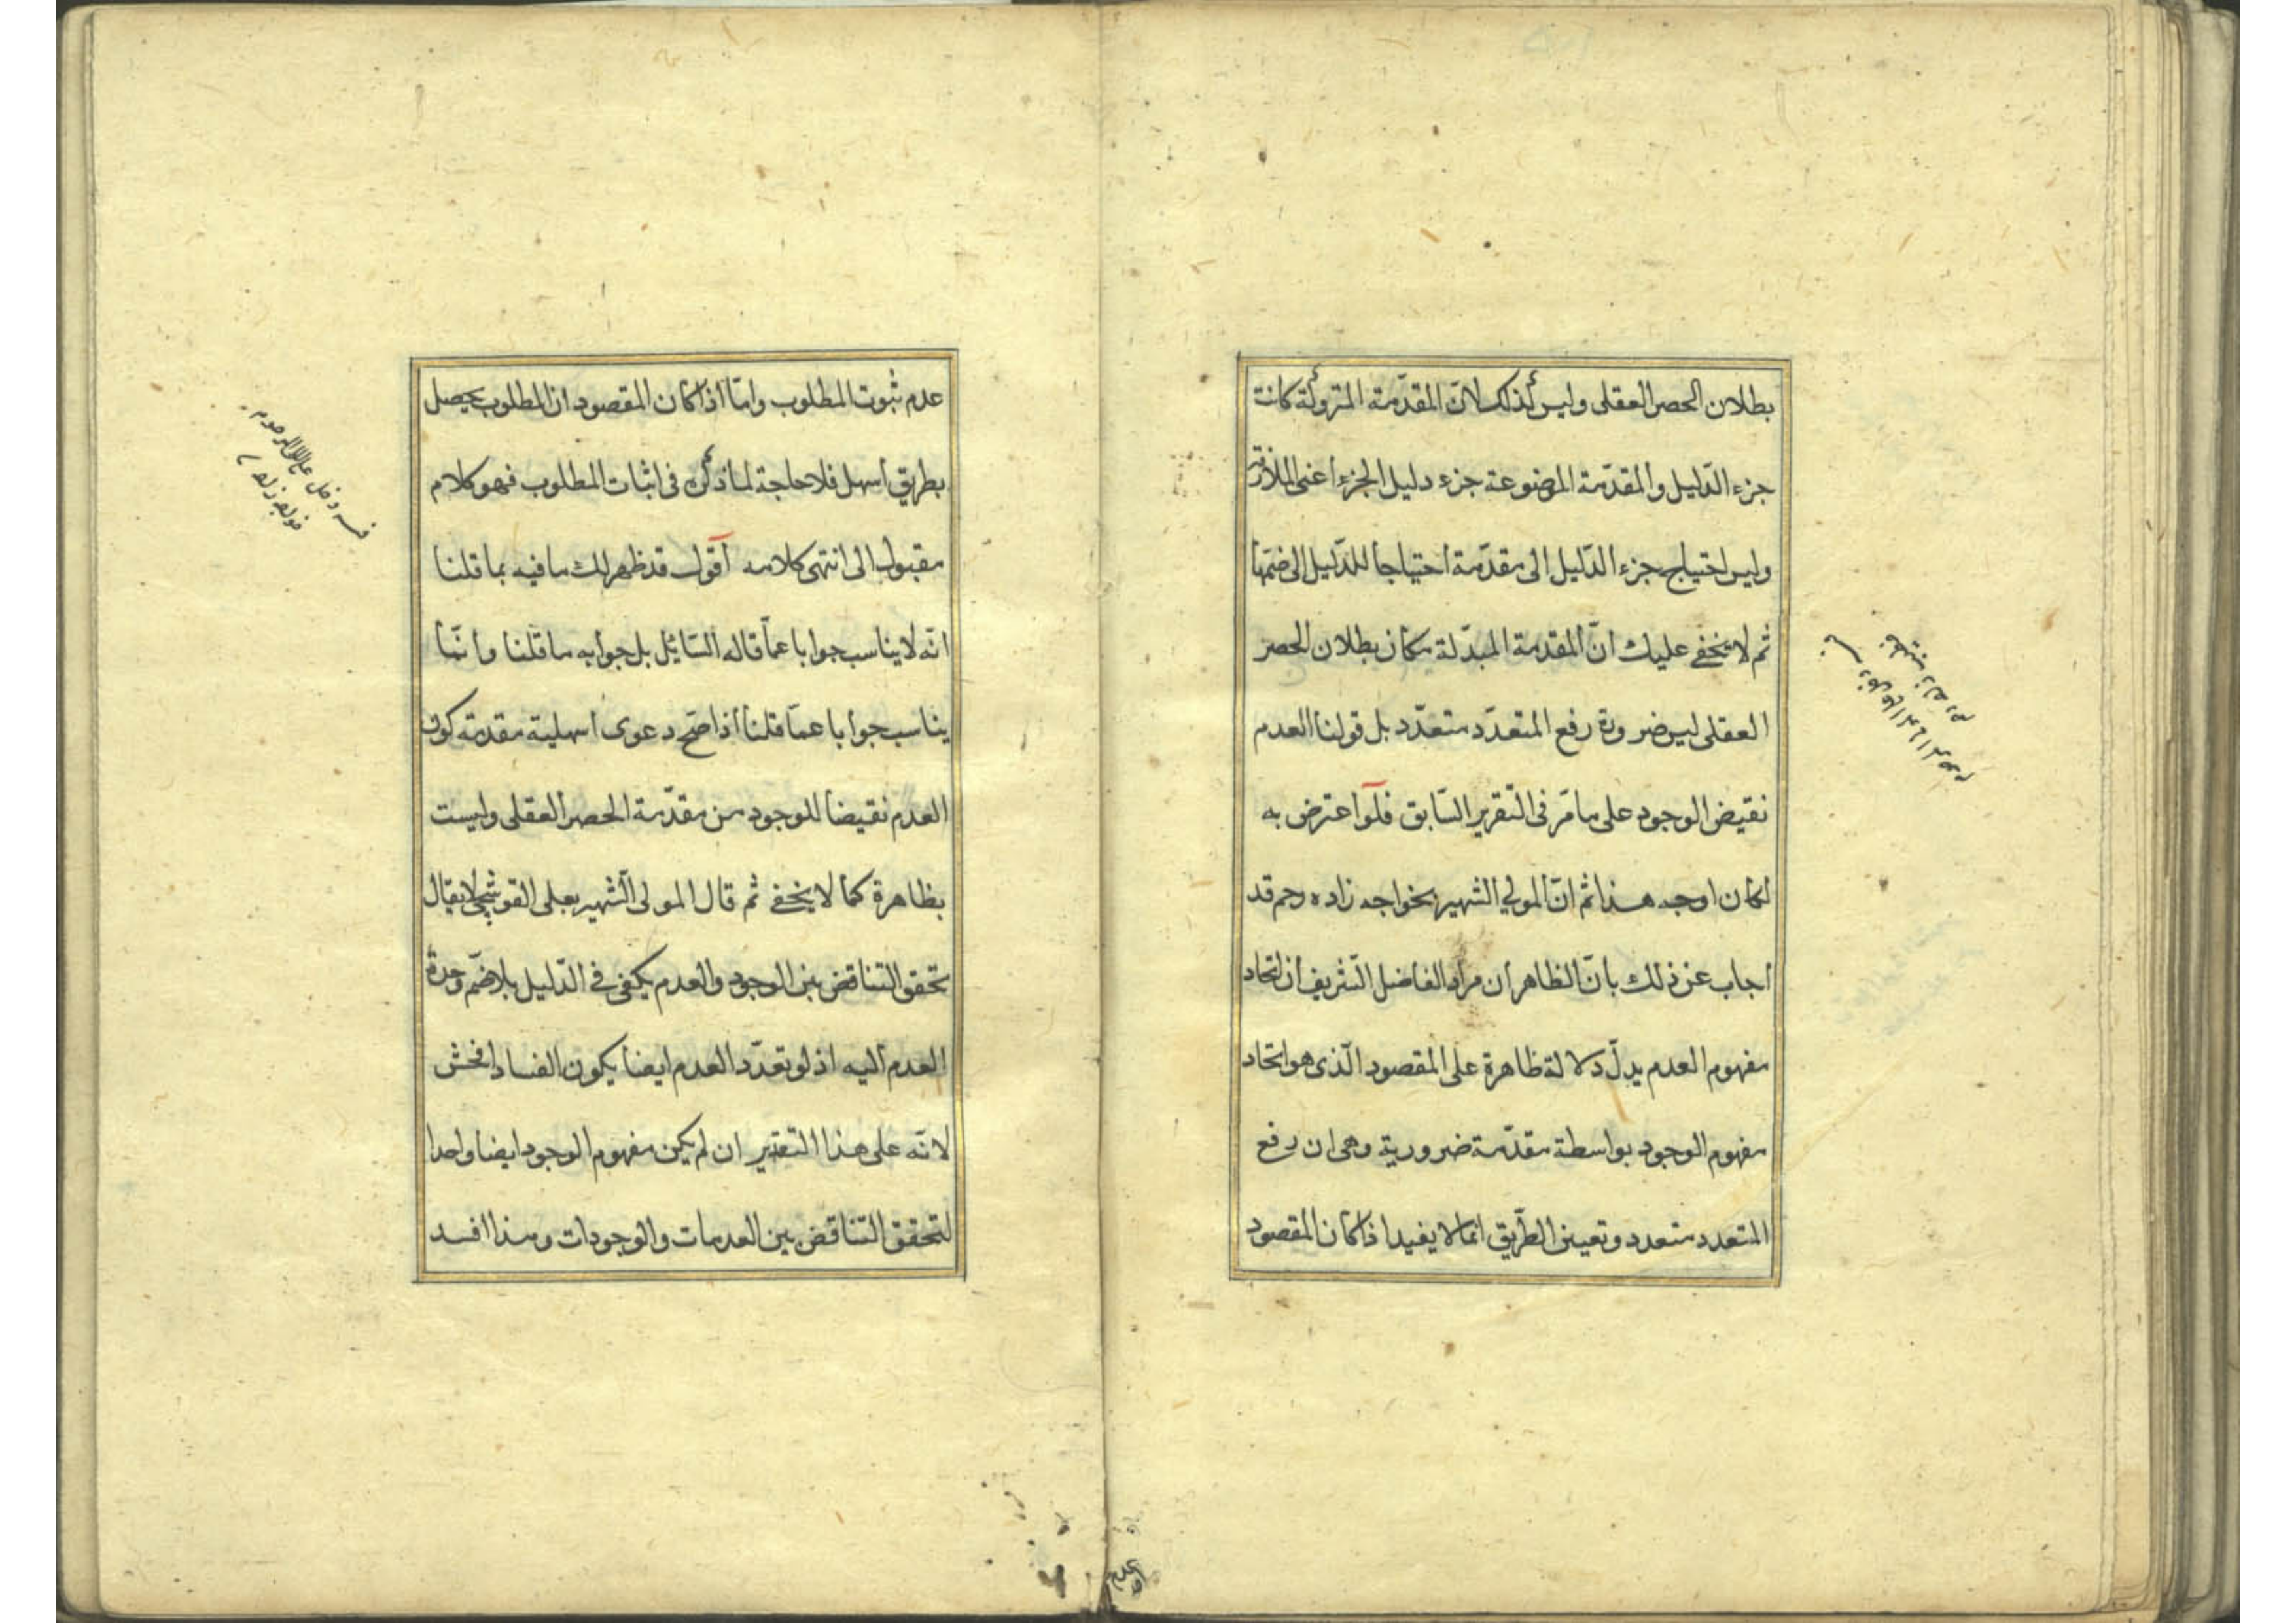 بطلان الحصر العقلى وليس كذلك لانّ المقدّمة المتروكة كانت
جزء الدّليل والمقدّمة الموضوعة جزء دليل الجزء اعنى الملازمة
وليس احتياج جزء الدّليل الى مقدّمة احتياجا للدّليل الى ضمّها
ثم لا يخفى عليك انّ المقدمة المبدّلة مكان بطلان الحصر
العقلى ليس ضرورة رفع المتعدّد متعدّد بل قولنا العدم
نقيض الوجود على ما مرّ فى التّقرير السّابق فلو اعترض به
لكان اوجه هذا ثم انّ المولى الشهير بخواجه زاده رحم قد
اجاب عن ذلك بانّ الظاهر ان مراد الفاضل الشّريف ان اتحاد
مفهوم العدم يدلّ دلالة ظاهرة على المقصود الّذى هو اتحاد
مفهوم الوجود بواسطة مقدّمة ضرورية وهى ان رفع
المتعدد متعدد وتعيين الطّريق انما لا يفيد اذا كان المقصود
عدم
عدم ثبوت المطلوب وامّا اذا كان المقصود ان المطلوب يحصل
بطريق اسهل فلا حاجة لما ذكر فى اثبات المطلوب فهو كلام
مقبول الى انتهى كلامه اقول قد ظهر لك ما فيه بما قلنا
انّه لا يناسب جوابا عمّا قاله السّائل بل جوابه ما قلنا وانّما
يناسب جوابا عمّا قلنا اذا صحّ دعوى اسهلية مقدمة كون
العدم نقيضا للوجود من مقدّمة الحصر العقلى وليست
بظاهرة كما لا يخفى ثم قال المولى الشّهير بعلى القوشجى لا يقال
تحقق التّناقض بين الوجود والعدم يكفى فى الدّليل بلا ضمّ وحدة
العدم اليه اذ لو تعدّد العدم ايضا يكون الفساد افحش
لانّه على هذا التقدير ان لم يكن مفهوم الوجود ايضا واحدا
لتحقق التّناقض بين العدمات والوجودات وهذا افسد